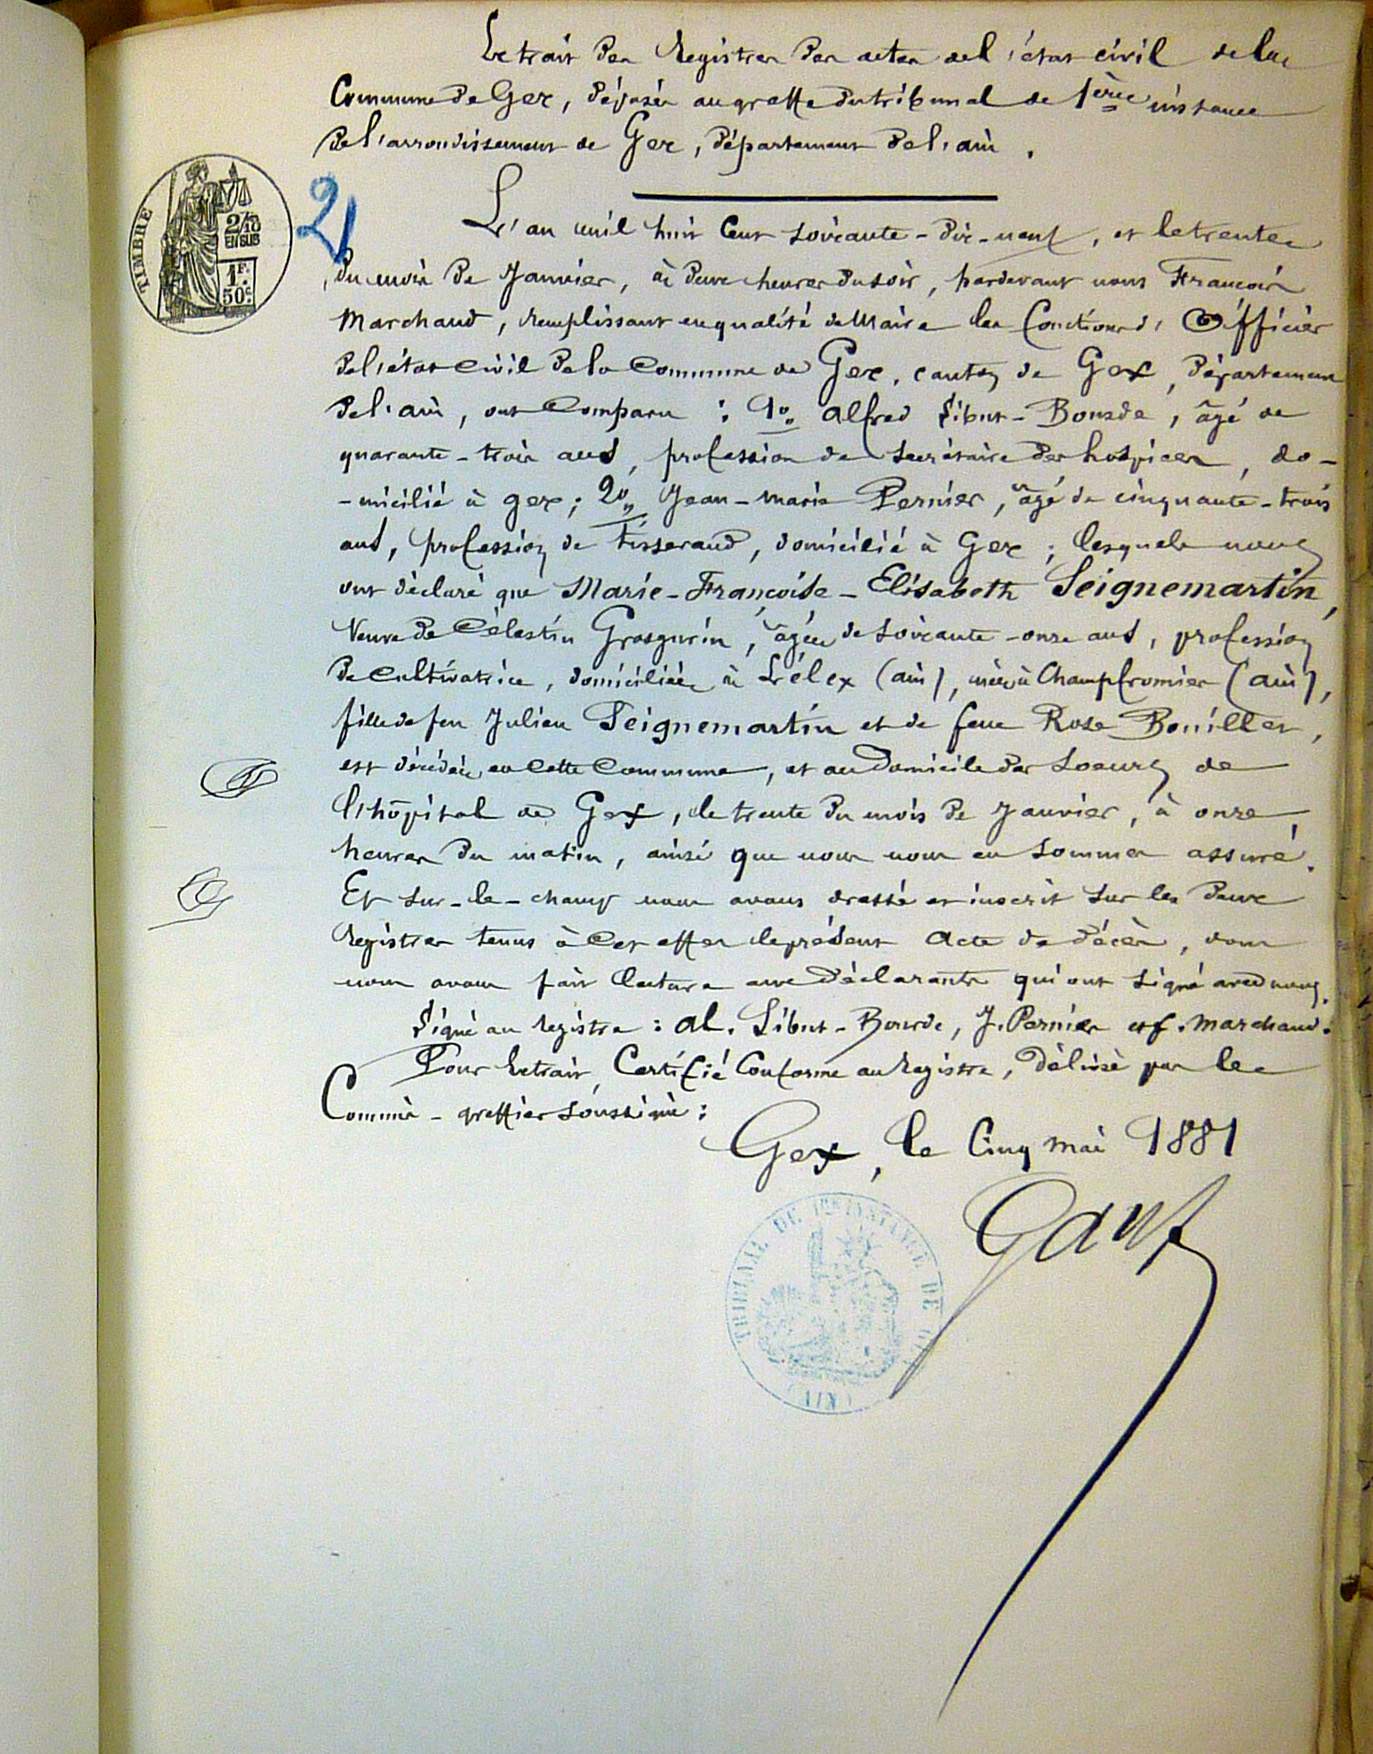 Extrait des Registres des actes de l'état civil de la
Commune de Gex, déposés au greffe du tribunal de 1ère instance
de l'arrondissement de Gex, département de l'ain.
TIMBRE
2/10
EN SUS
1F.
50c.
2
L'an mil huit Cent soixante-dix-neuf, et le trente
du mois de Janvier, à deux heures du soir, pardevant nous François
Marchand, remplissant en qualité de Maire les fonctions d'Officier
de l'état civil de la Commune de Gex, canton de Gex, département
de l'ain, ont Comparu : 1o. Alfred Sibut-Bourde, âgé de
quarante-trois ans, profession de secrétaire des hospices, do-
-micilié à gex; 2o, Jean-marie Pernier, âgé de cinquante-trois
ans, profession de tisserand, domicilié à Gex; lesquels nous
ont déclaré que Marie-Françoise-Elisabeth Seignemartin,
Veuve de Célestin Grosgurin, âgée de soixante-onze ans, profession
de Cultivatrice, domiciliée à Lélex (ain), née à Champfromier (ain),
fille de feu Julien Seignemartin et de feue Rose Bouillet,
est décédée en cette Commune, et au Domicile des Soeurs de
l'hôpital de Gex, le trente du mois de Janvier, à onze
heures du matin, ainsi que nous nous en sommes assuré.
Et sur-le-champ nous avons dressé et inscrit sur les deux
Registres tenus à Cet effet le présent Acte de décès, dont
nous avons fait lecture aux Déclarants qui ont signé avec nous.
Signé au registre : al. Sibut-Bourde, J. Pernier et f. marchand.
Pour Extrait Certifié Conforme au Registre, Délivré par le
Commis-greffier soussigné :
Gex, le Cinq mai 1881
TRIBUNAL DE 1RE INSTANCE DE GEX
(AIN)